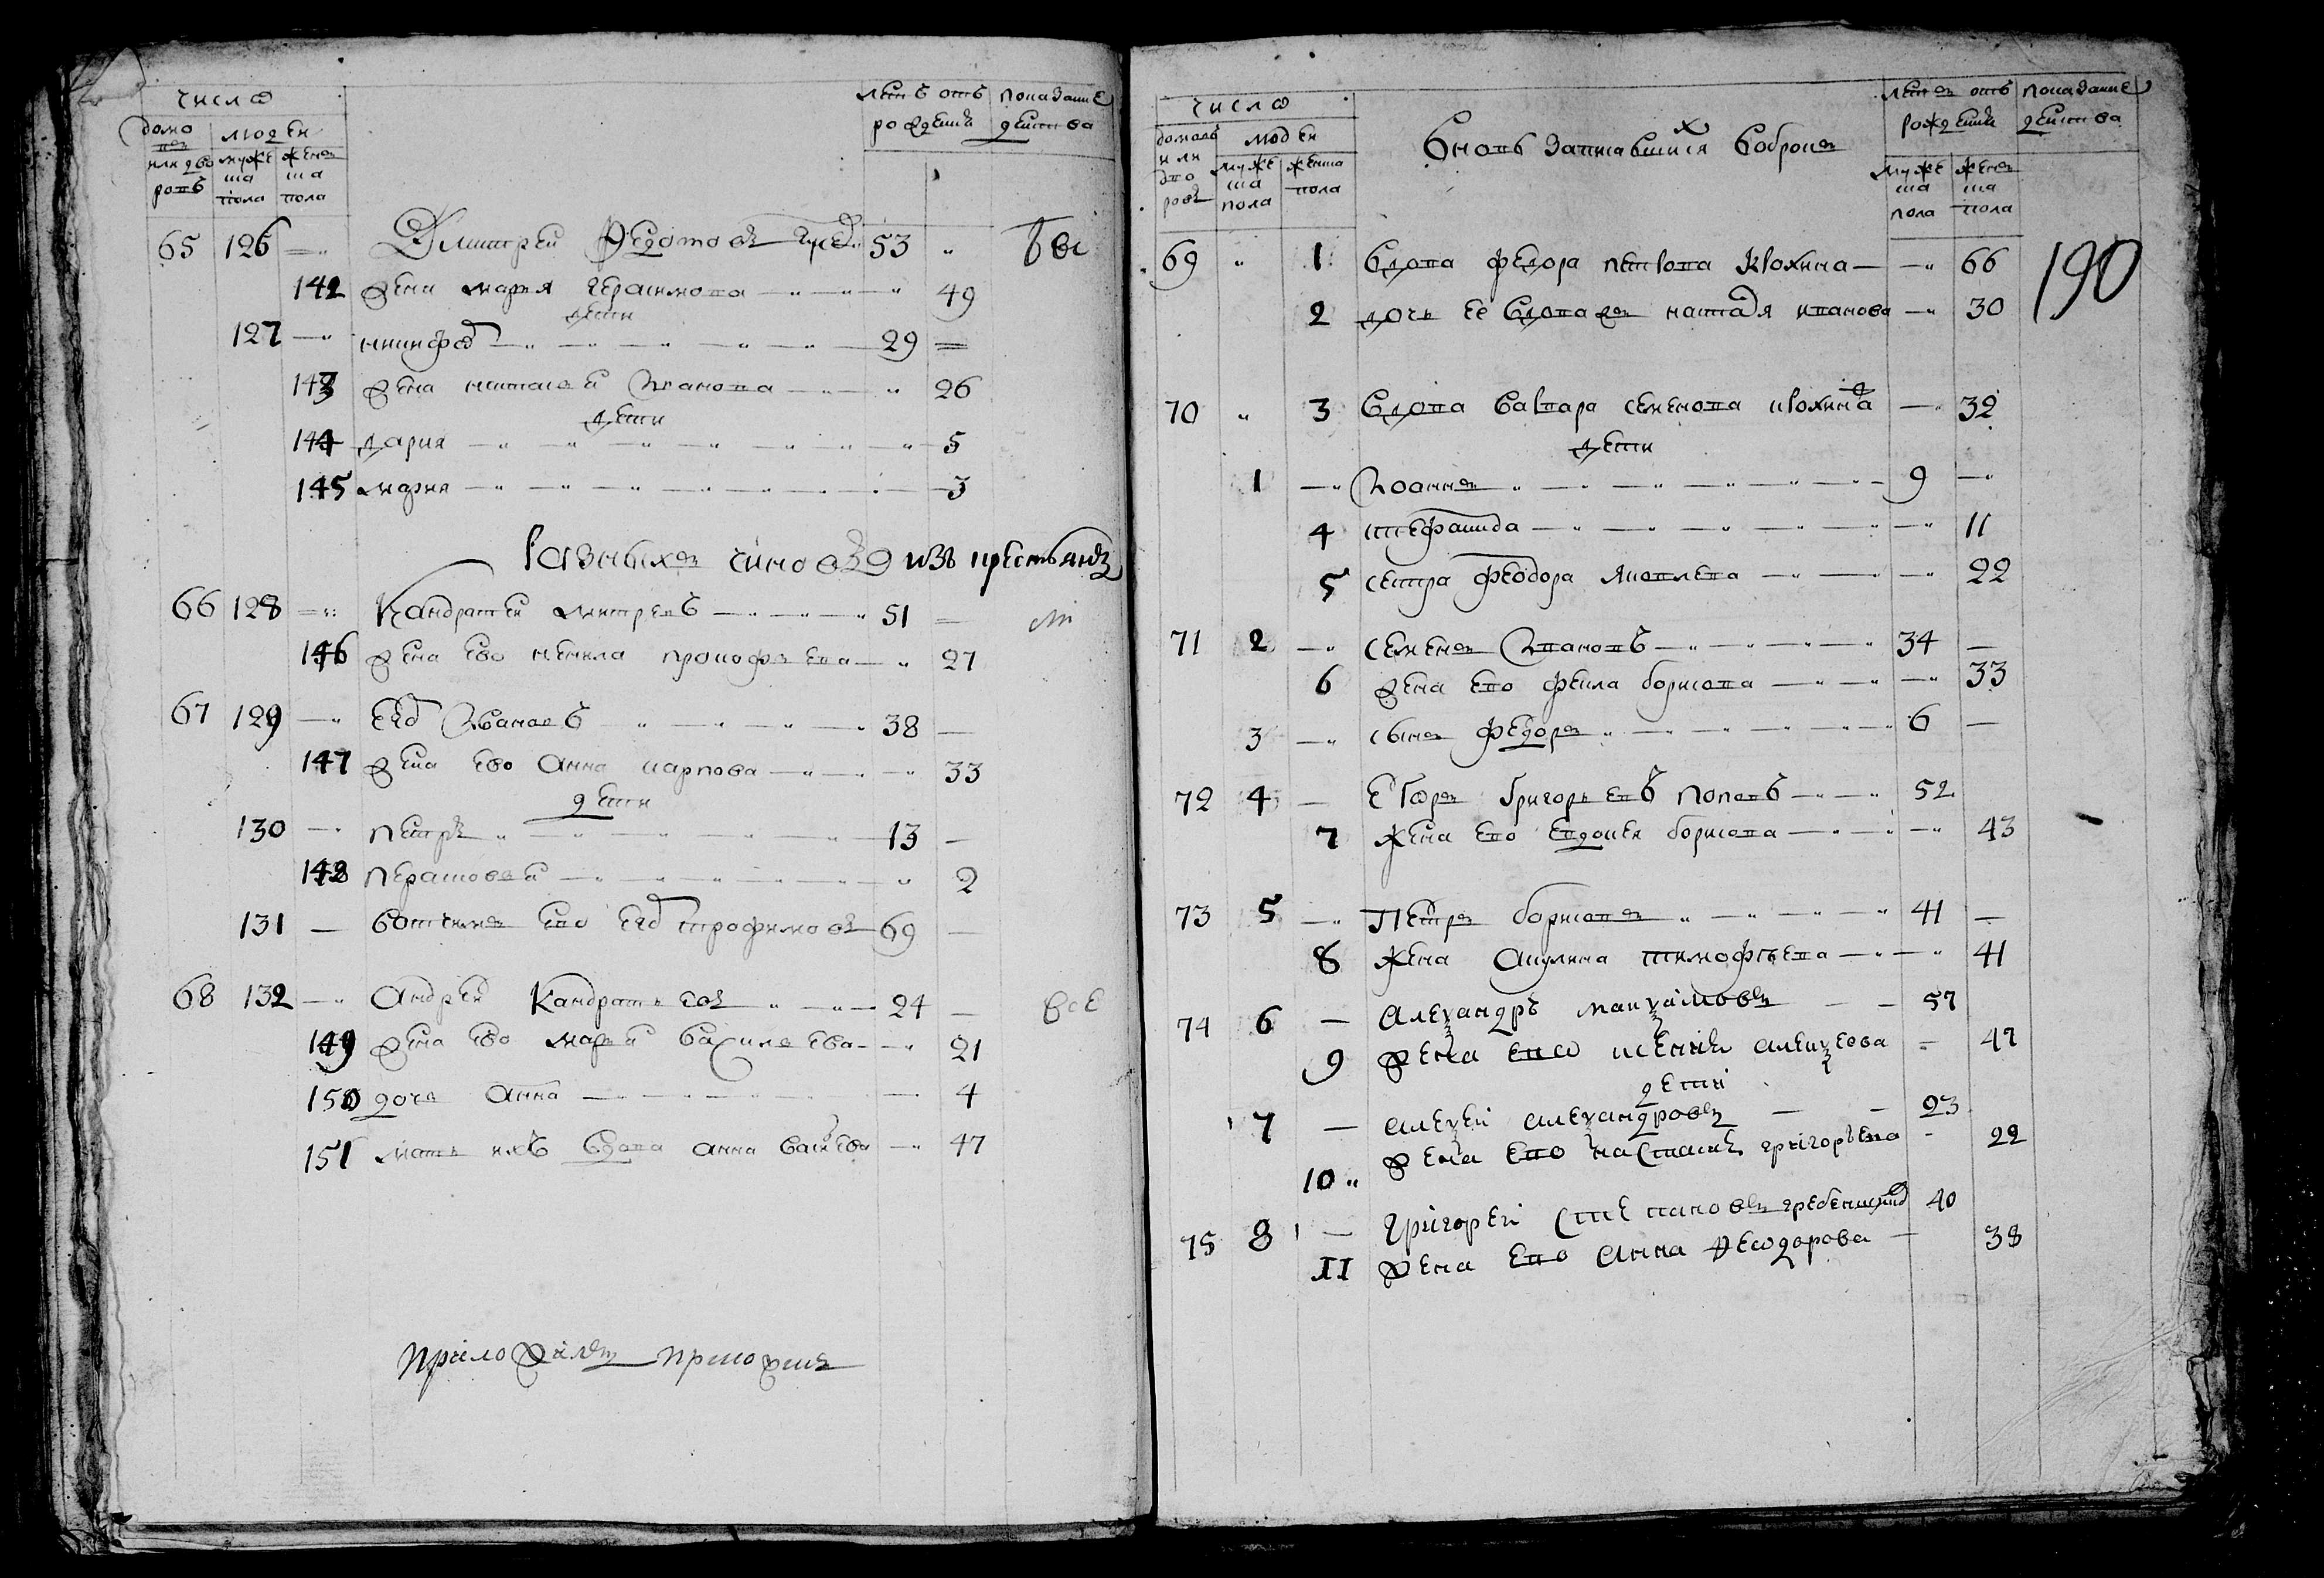 число
домовъ или дворовъ
людей
мужеска пола
женска пола
летъ отъ рождения
показание действа
65 126 Дмитрей Федотовъ 53
142 жена мария герасимова 49
дети
127 никифор 29
143 жена наталья Иванова 26
дети
144 дария 5
145 мария 3
Разныхъ чиновъ изъ крестьянъ
66 128 Кандратей дмитревъ 51
146 жена ево ненила прокофьева 27
67 129 Егор Ивановъ 38
147 жена ево Анна карпова 33
дети
130 петръ 13
148 парасковей 2
131 вотчимъ ево Егор трофимовъ 69
68 132 Андрей Кандратьевъ 24 все
149 жена ево марья василева 21
150 дочь Анна 4
151 мать ихъ вдова анна 47
приложилъ
число
домовъ или дворовъ
людей
мужеска пола
женска пола
Вновь записавшияся
летъ отъ рождения
мужеска пола
женска пола
показание действа
190
69 1 вдова федора петрова 66
2 дочь ее вдова жъ наталя иванова 30
70 3 вдова варвара семенова 32
дети
1 Иоаннъ 9
4 стефанида 11
5 сестра феодора яковлева 22
71 2 семенъ Ивановъ 34
6 жена ево фекла борисова 33
3 сынъ федоръ 6
72 4 Егоръ григорьевъ поповъ 52
7 жена ево евдокея борисова 43
73 5 Петръ борисовъ 41
8 жена акулина тимофеева 41
74 6 александръ максимовъ 57
9 жена ево ксения алексеева 47
дети
7 алексей александровъ 23
10 жена ево настасия григорьева 22
75 8 григорей степановъ гребенщиков 40
11 жена ево анна феодорова 38